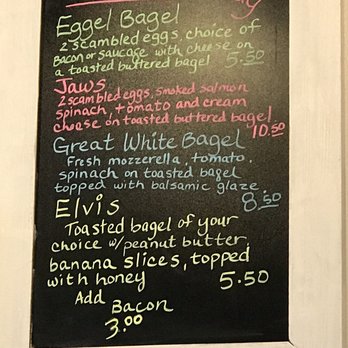 Eggel Bagel
2 scambled eggs, choice of
Bacon or saucage with cheese on
a toasted buttered bagel 5.50
Jaws
2 scambled eggs, smoked salmon
spinach, tomato and cream
cheese on toasted buttered bagel
10.50
Great White Bagel
Fresh mozzerella, tomato.
spinach on toasted bagel
topped with balsamic glaze.
8.50
Elvis
Toasted bagel of your
choice w/peanut butter,
banana slices, topped
with honey 5.50
Add Bacon
3.00